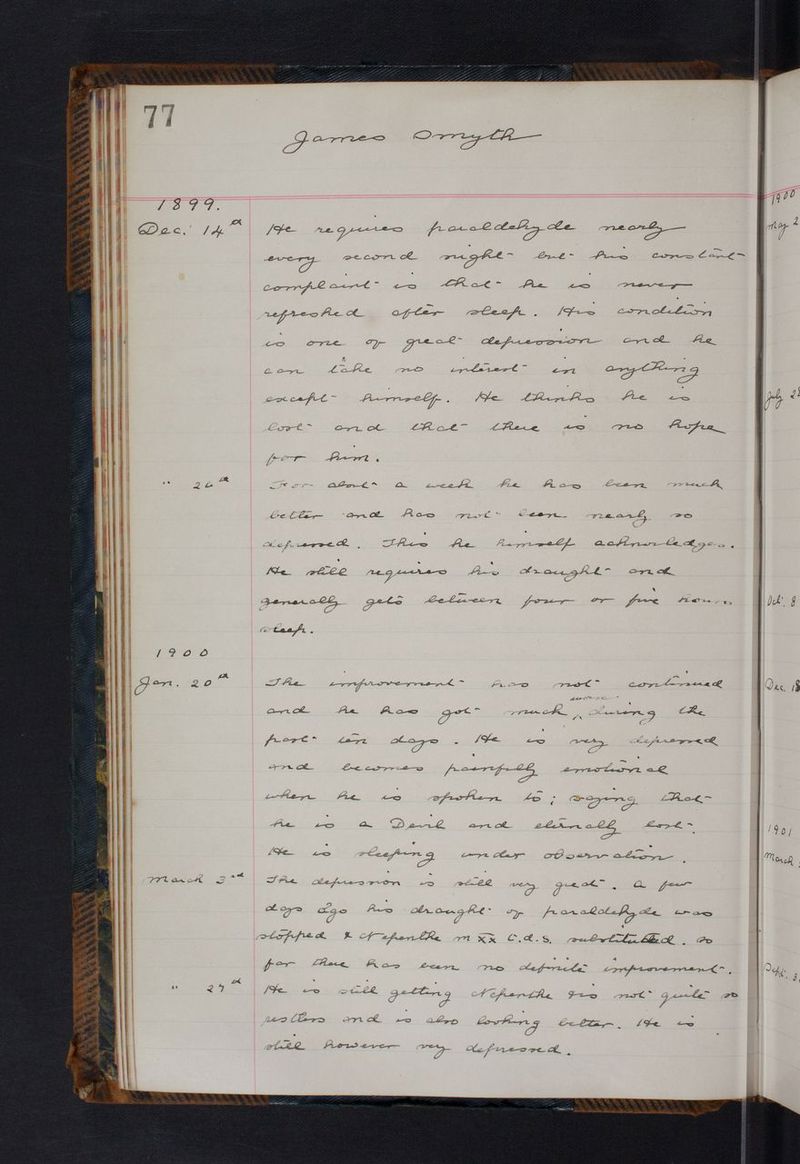 77
James Smyth
1899.
Dec. 14th He requires paraldehyde nearly
every second night - but his constant
complaint is that he is never
refreshed after sleep. His condition
is one of great depression and he
can take no interest in anything
except himself. He thinks he is
lost and that there is no hope
for him.
" 26th For about a week he has been much
better and has not been nearly so
depressed. This he himself acknowledges.
He still requires his draught and
generally gets between four or five hours
sleep.
1900
Jan. 20th The improvement has not continued
and he has got much worse during the
past ten days. He is very depressed
and becomes painfully emotional
when he is spoken to; saying that
he is a Devil and eternally lost.
He is sleeping under observation.
March 3rd The depression is still very great. A few
days ago his draught of paraldehyde was
stopped & Nepenthe m xx t.d.s. substituted. So
far there has been no definite improvement.
" 27th He is still getting Nepenthe & is not quite so
restless and is also looking better. He is
still however very depressed.
1900
May 2
July 2
Oct. 8
Dec 18
1901
March
Sept. 3